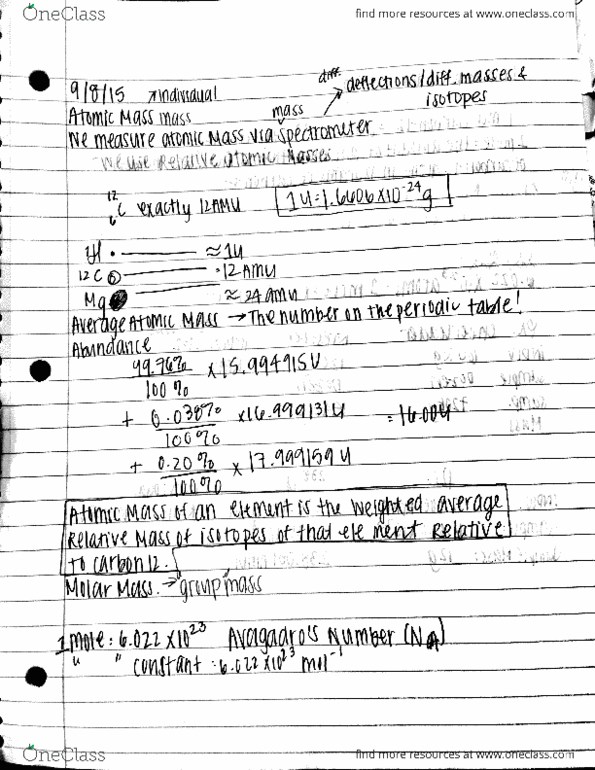 OneClass
find more resources at www.oneclass.com
diff. deflections/diff. masses &
isotopes
9/8/15 ↗individual
Atomic Mass mass
mass
We measure atomic Mass via spectrometer
We use Relative atomic Masses
12
6 C exactly 12AMU 1U=1.6606X10^-24 g
H • ≈ 1U
12 C 6 • 12 AMU
Mg ≈ 24 amu
Average Atomic Mass → The number on the periodic table!
Abundance
99.76% × 15.994915U
100%
+ 0.038% ×16.999131U = 16.00U
100%
+ 0.20% × 17.999159 U
100%
Atomic Mass of an element is the weighted average
Relative Mass of isotopes of that element Relative
to carbon 12.
Molar Mass. → "group mass
1 mole: 6.022 X10^23 Avagadro's Number (NA)
" " constant : 6.022 X10^23 mol^-1
OneClass
find more resources at www.oneclass.com